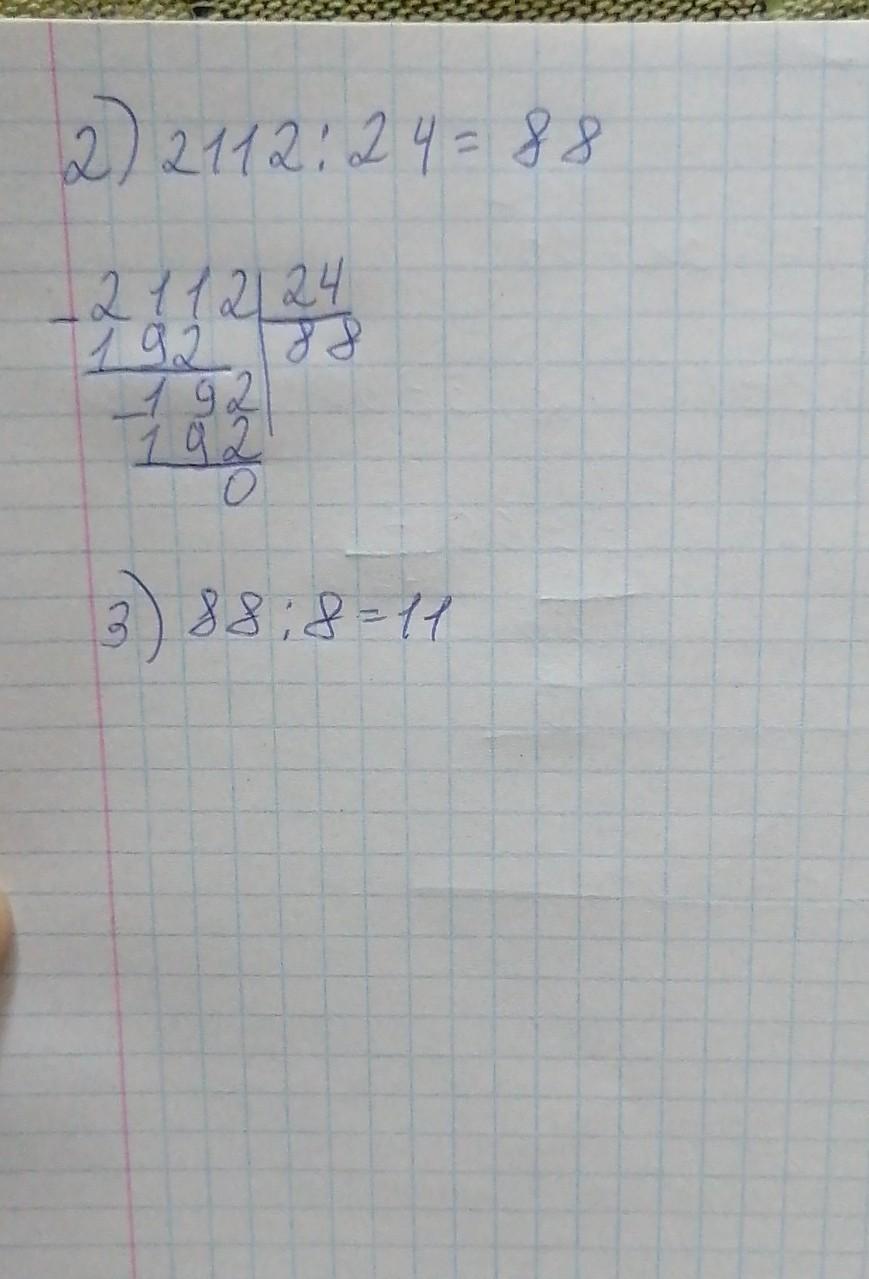 2) 2112:24=88
-2112|24
192 88
-192
192
0
3) 88:8=11